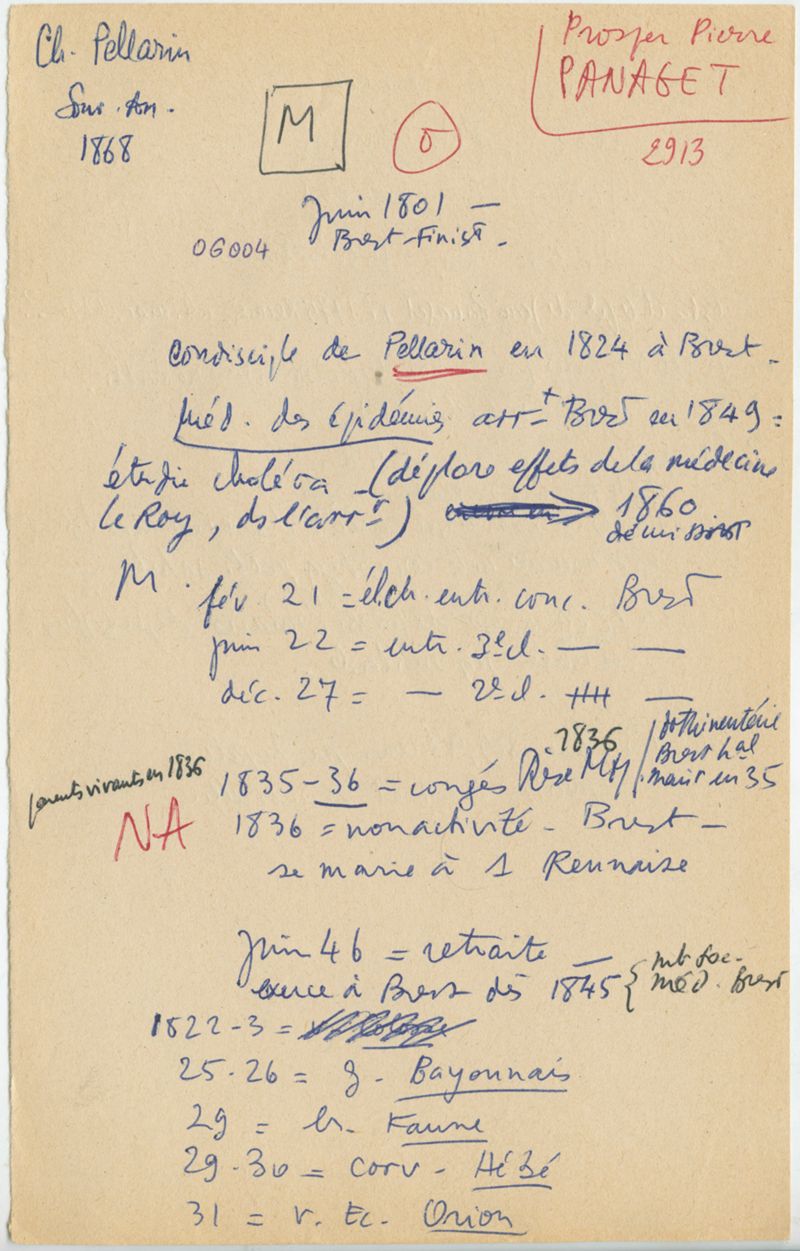 Ch. Pellarin
Souv. An.
1868
M
Prosper Pierre
PANAGET
2913
Juin 1801 —
Brest-Finist.
06004
Condisciple de Pellarin en 1824 à Brest.
Méd. des épidémies arrt Brest en 1849 =
étudie choléra (déplore effets de la médecine
le Roy, ds l'arrt) 1860
démission
M.
fév. 21 = él.ch. entr. conc. Brest
juin 22 = entr. 3e cl. — —
déc. 27 = — 2e cl. —
1836
dothinentérie
Brest hal
marit en 35
parents vivants en 1836
1835-36 = congés
NA
1836 = nonactivité - Brest -
se marie à 1 Rennaise
Juin 46 = retraite —
exerce à Brest dès 1845 {
mb soc.
méd. Brest
1822-3 =
25-26 = g. Bayonnais
29 = br. Faune
29-30 = corv. Hébé
31 = v. Ec. Orion